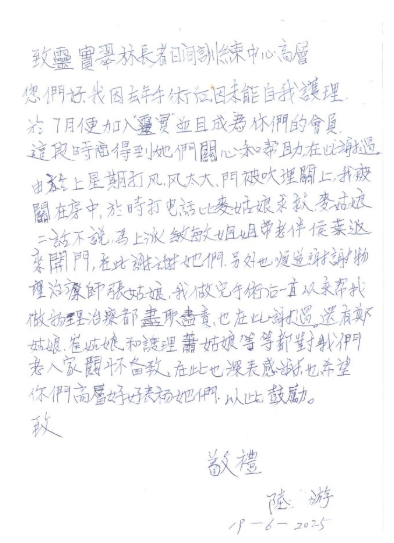 致靈實翠林長者日間訓練中心高層
您們好我因去年手術后因未能自我護理
於7月便加入靈實並且成為你們的會員
這段時間得到她們關心和幫助在此謝過
由於上星期打风,风太大,門被吹埋關上,我被
關在房中,於時打电話比麥姑娘求救,麥姑娘
二話不說,馬上派敏敏姐姐帶者伴信葉返
來開門,在此謝謝她們,另外也順道謝謝物
理治療師張姑娘,我做完手術后一直以來幫我
做物理治療都盡職盡責,也在此謝過,還有鄭
姑娘,崔姑娘,和護理蕭姑娘等等都對我們
老人家關怀备致,在此也深表感謝,也希望
你們高層好好表揚她們,以此鼓勵。
致
敬禮
陸 游
19-6-2025